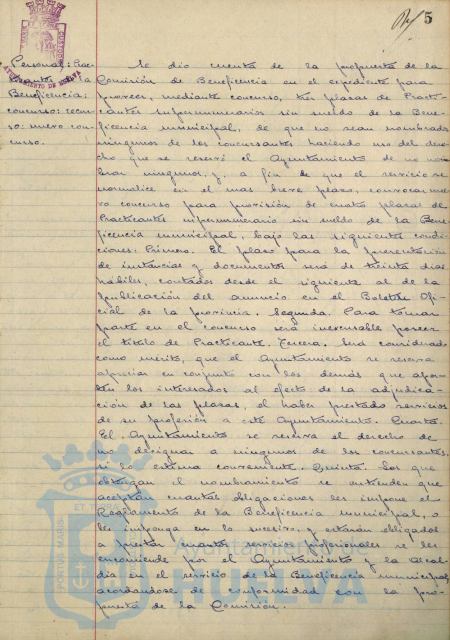 5
Personal: Prac-
ticantes de la
Beneficencia:
concurso: recur-
so: nuevo con-
curso.
Se dio cuenta de la propuesta de la
Comisión de Beneficencia en el expediente para
proveer, mediante concurso, tres plazas de Practi-
cantes supernumerarios sin sueldo de la Bene-
ficencia municipal, de que no sean nombrados
ningunos de los concursantes haciendo uso del dere-
cho que se reservó el Ayuntamiento de no nom-
brar ninguno, y, a fin de que el servicio se
normalice en el mas breve plazo, convocar nue-
vo concurso para provisión de cuatro plazas de
Practicantes supernumerario sin sueldo de la Bene-
ficencia municipal, bajo las siguientes condi-
ciones: Primera. El plazo para la presentación
de instancias y documentos será de treinta dias
habiles, contados desde el siguiente al de la
publicación del anuncio en el Boletin Ofi-
cial de la provincia. Segunda. Para tomar
parte en el concurso será inexcusable poseer
el titulo de Practicante. Tercera. Será considerado
como mérito, que el Ayuntamiento se reserva
apreciar en conjunto con los demás que apor-
ten los interesados al efecto de la adjudica-
ción de las plazas, el haber prestado servicios
de su profesión a este Ayuntamiento. Cuarta.
El Ayuntamiento se reserva el derecho de
no designar a ninguno de los concursantes
si lo estima conveniente. Quinta. Los que
obtengan el nombramiento se entienden que
aceptan cuantas obligaciones les impone el
Reglamento de la Beneficencia municipal, o
les imponga en lo sucesivo, y estarán obligados
a prestar cuantos servicios profesionales se les
encomiende por el Ayuntamiento y la Alcal-
dia en el servicio de la Beneficencia municipal,
acordandose de conformidad con la pro-
puesta de la Comisión.
AYUNTAMIENTO DE HUELVA
Ayuntamiento de
HUELVA
PORTUS MARIS
ET T